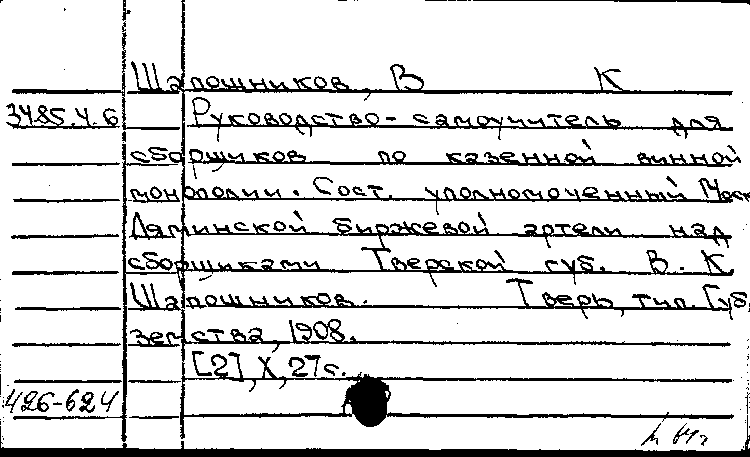 Шапошников, В К
3485.4.6 Руководство-самоучитель для
сборщиков по казенной винной
монополии. Сост. уполномоченный Моск
Ляминской биржевой артели над
сборщиками Тверской губ. В. К
Шапошников. Тверь, тип. Губ.
земства, 1908.
[2], X, 27 с.
426-624